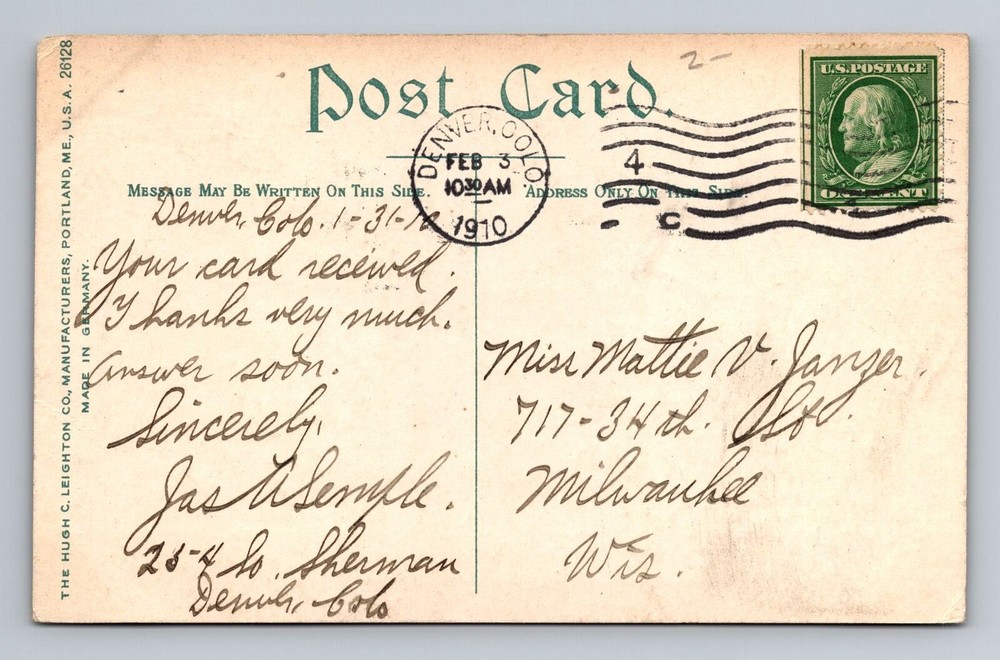 THE HUGH C. LEIGHTON CO., MANUFACTURERS, PORTLAND, ME., U.S.A. 26128
MADE IN GERMANY.
Post Card.
2-
U.S. POSTAGE
ONE CENT
DENVER, COLO
FEB 3
10 30 AM
1910
4
C
MESSAGE MAY BE WRITTEN ON THIS SIDE.
ADDRESS ONLY ON THIS SIDE.
Denver, Colo. 1-31-10
Your card received.
Thanks very much.
Answer soon.
Sincerely,
Jas A Semple.
254 So. Sherman
Denver, Colo
Miss Mattie V. Janzer.
717-34th. St.
Milwaukee
Wis.